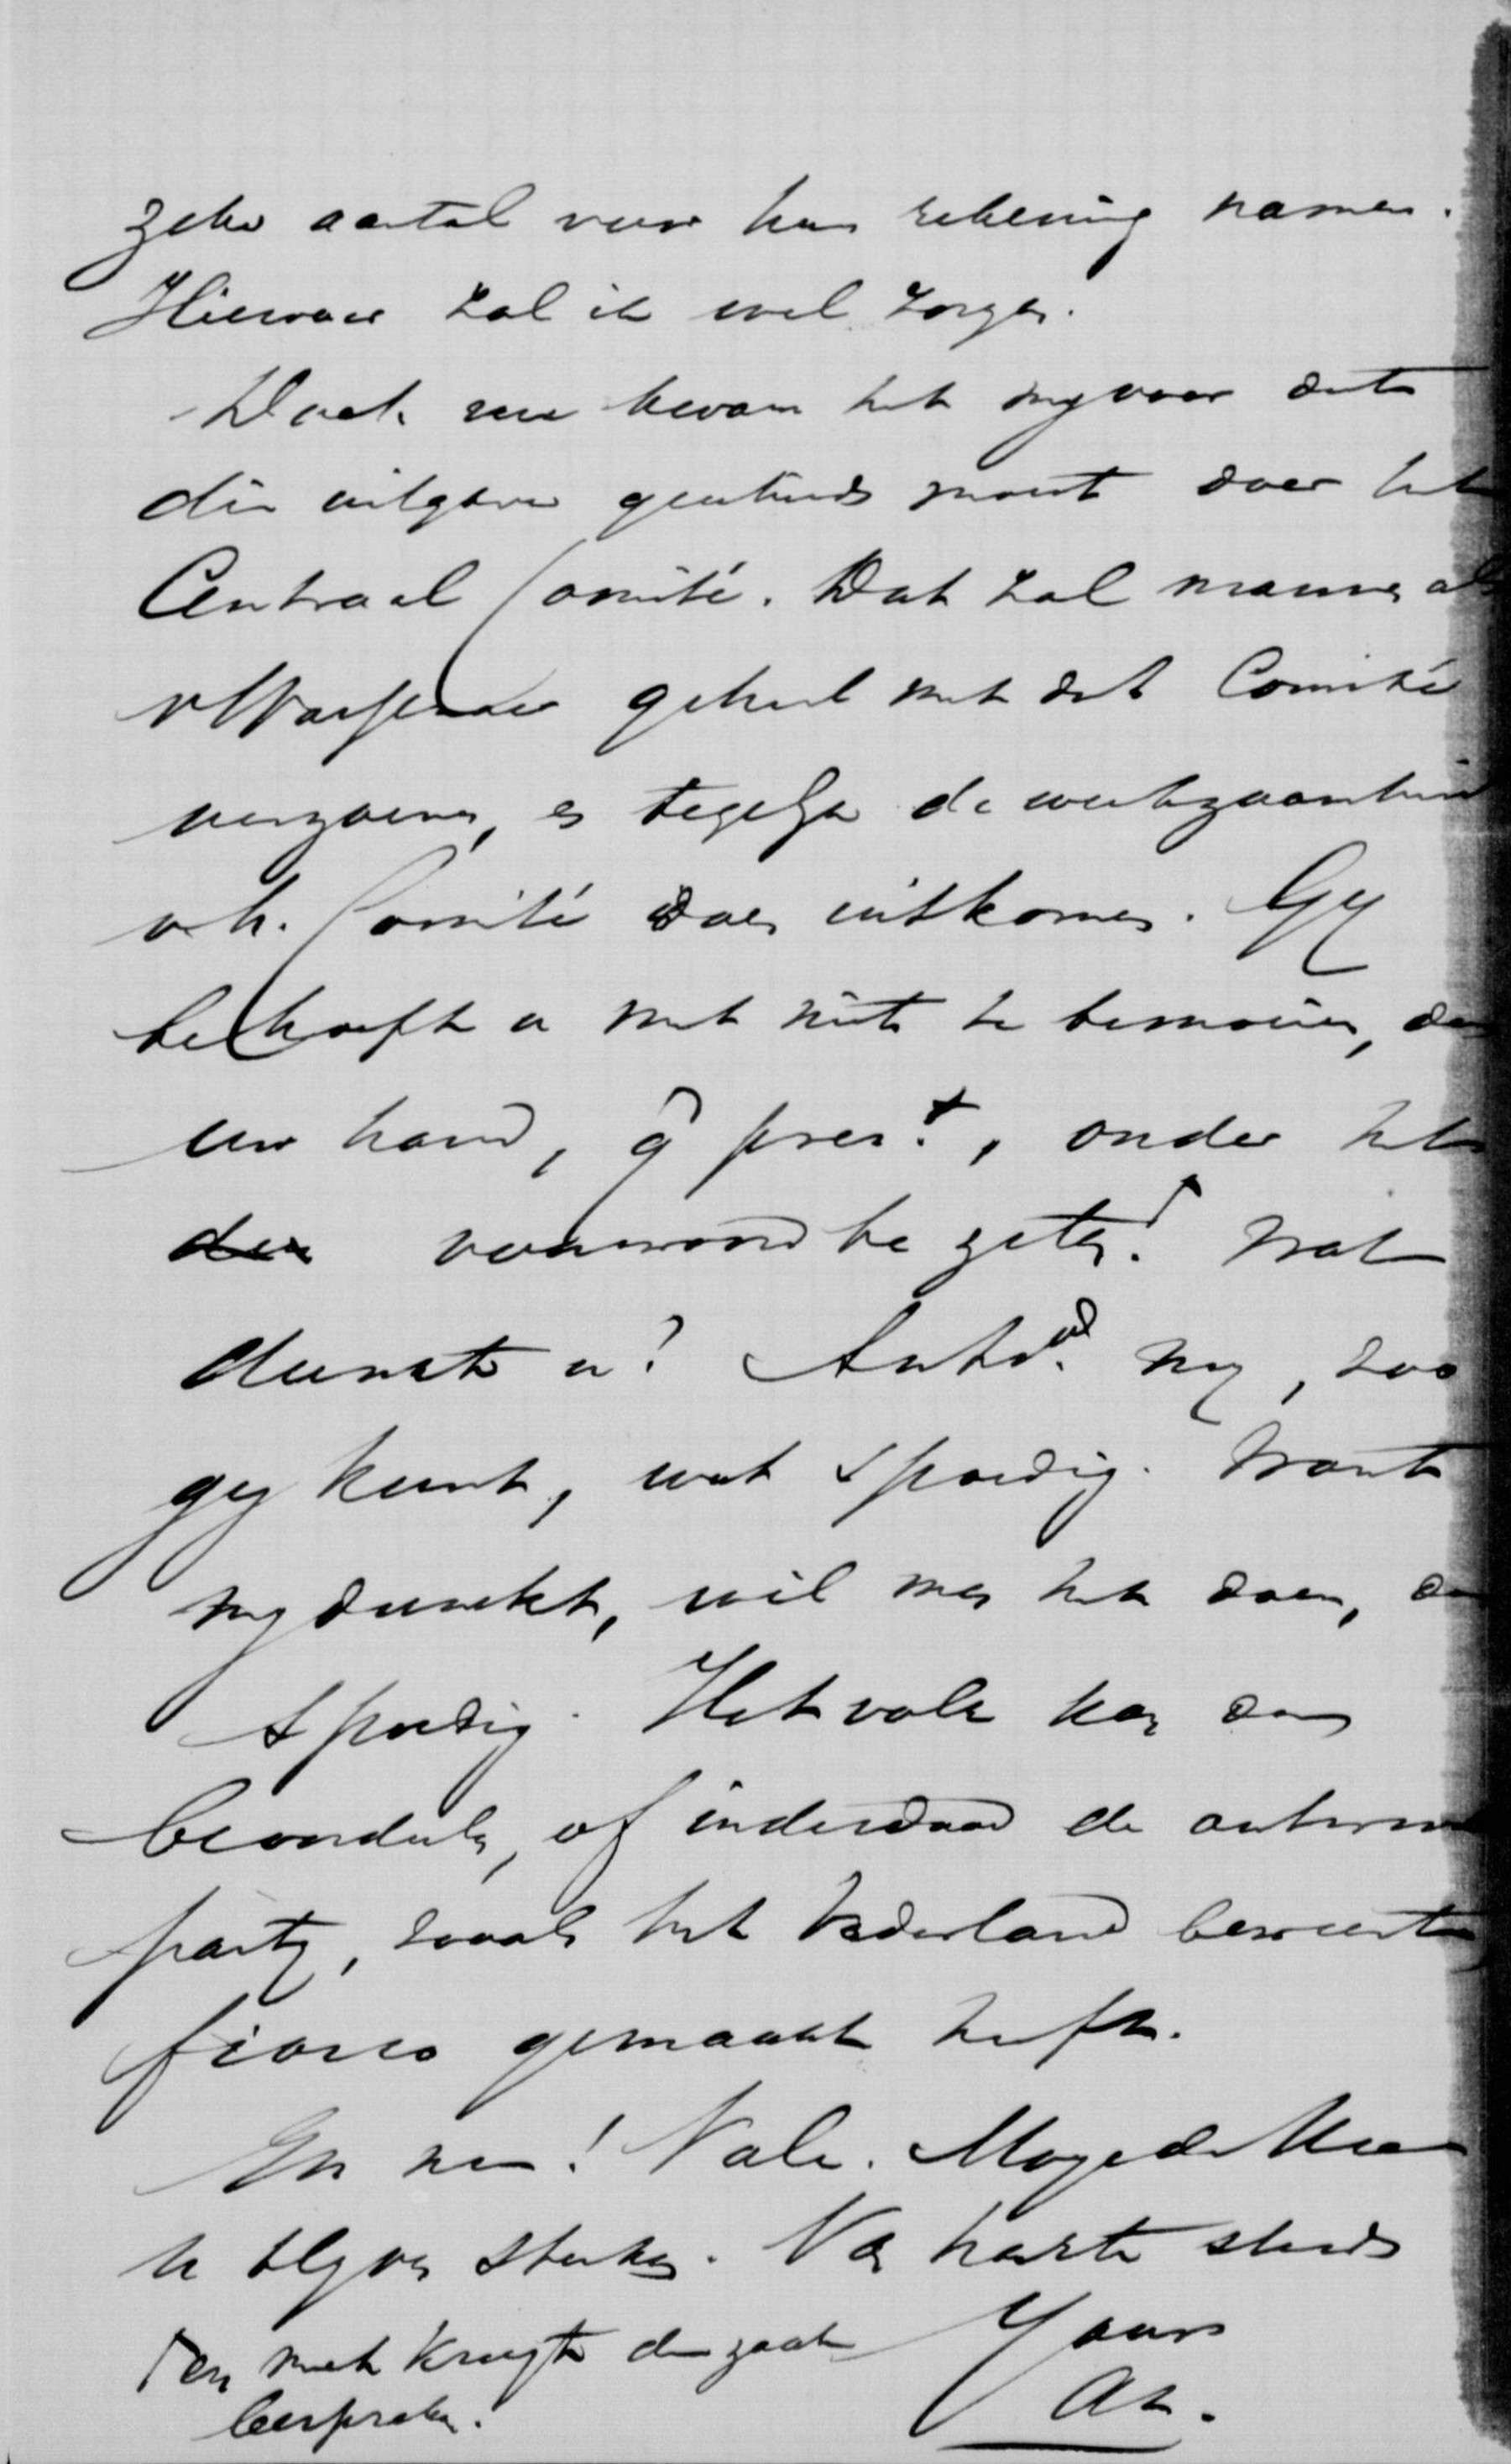 zeker aantal voor hun rekening namen.
Hiervoor zal ik wel zorgen.
Doch nu kwam het mij voor dat
die uitgave geschieden moest door het
Centraal Comité. Dat zal mannen als
v Wassenaer geheel met dat Comité
verzoenen, en tegelijk de werkzaamheid
v h. Comité doen uitkomen. Gij
behoeft u met niets te bemoeien, dan
uw hand, q q pres.t, onder het
voorwoord te zetten. Wat
dunkt u? Antw.d mij, zoo
gij kunt, wat spoedig. Want
mij dunkt, wil men het doen, dan
spoedig. Het volk kan dan
beoordeelen, of inderdaad de antirev
partij, zooals het Vaderland beweert
fiasco gemaakt heeft.
En nu! Vale. Moge de Heer
u blijven sterken. Van harte steeds
Yours
en met Kruyt de zaak
bespreken.